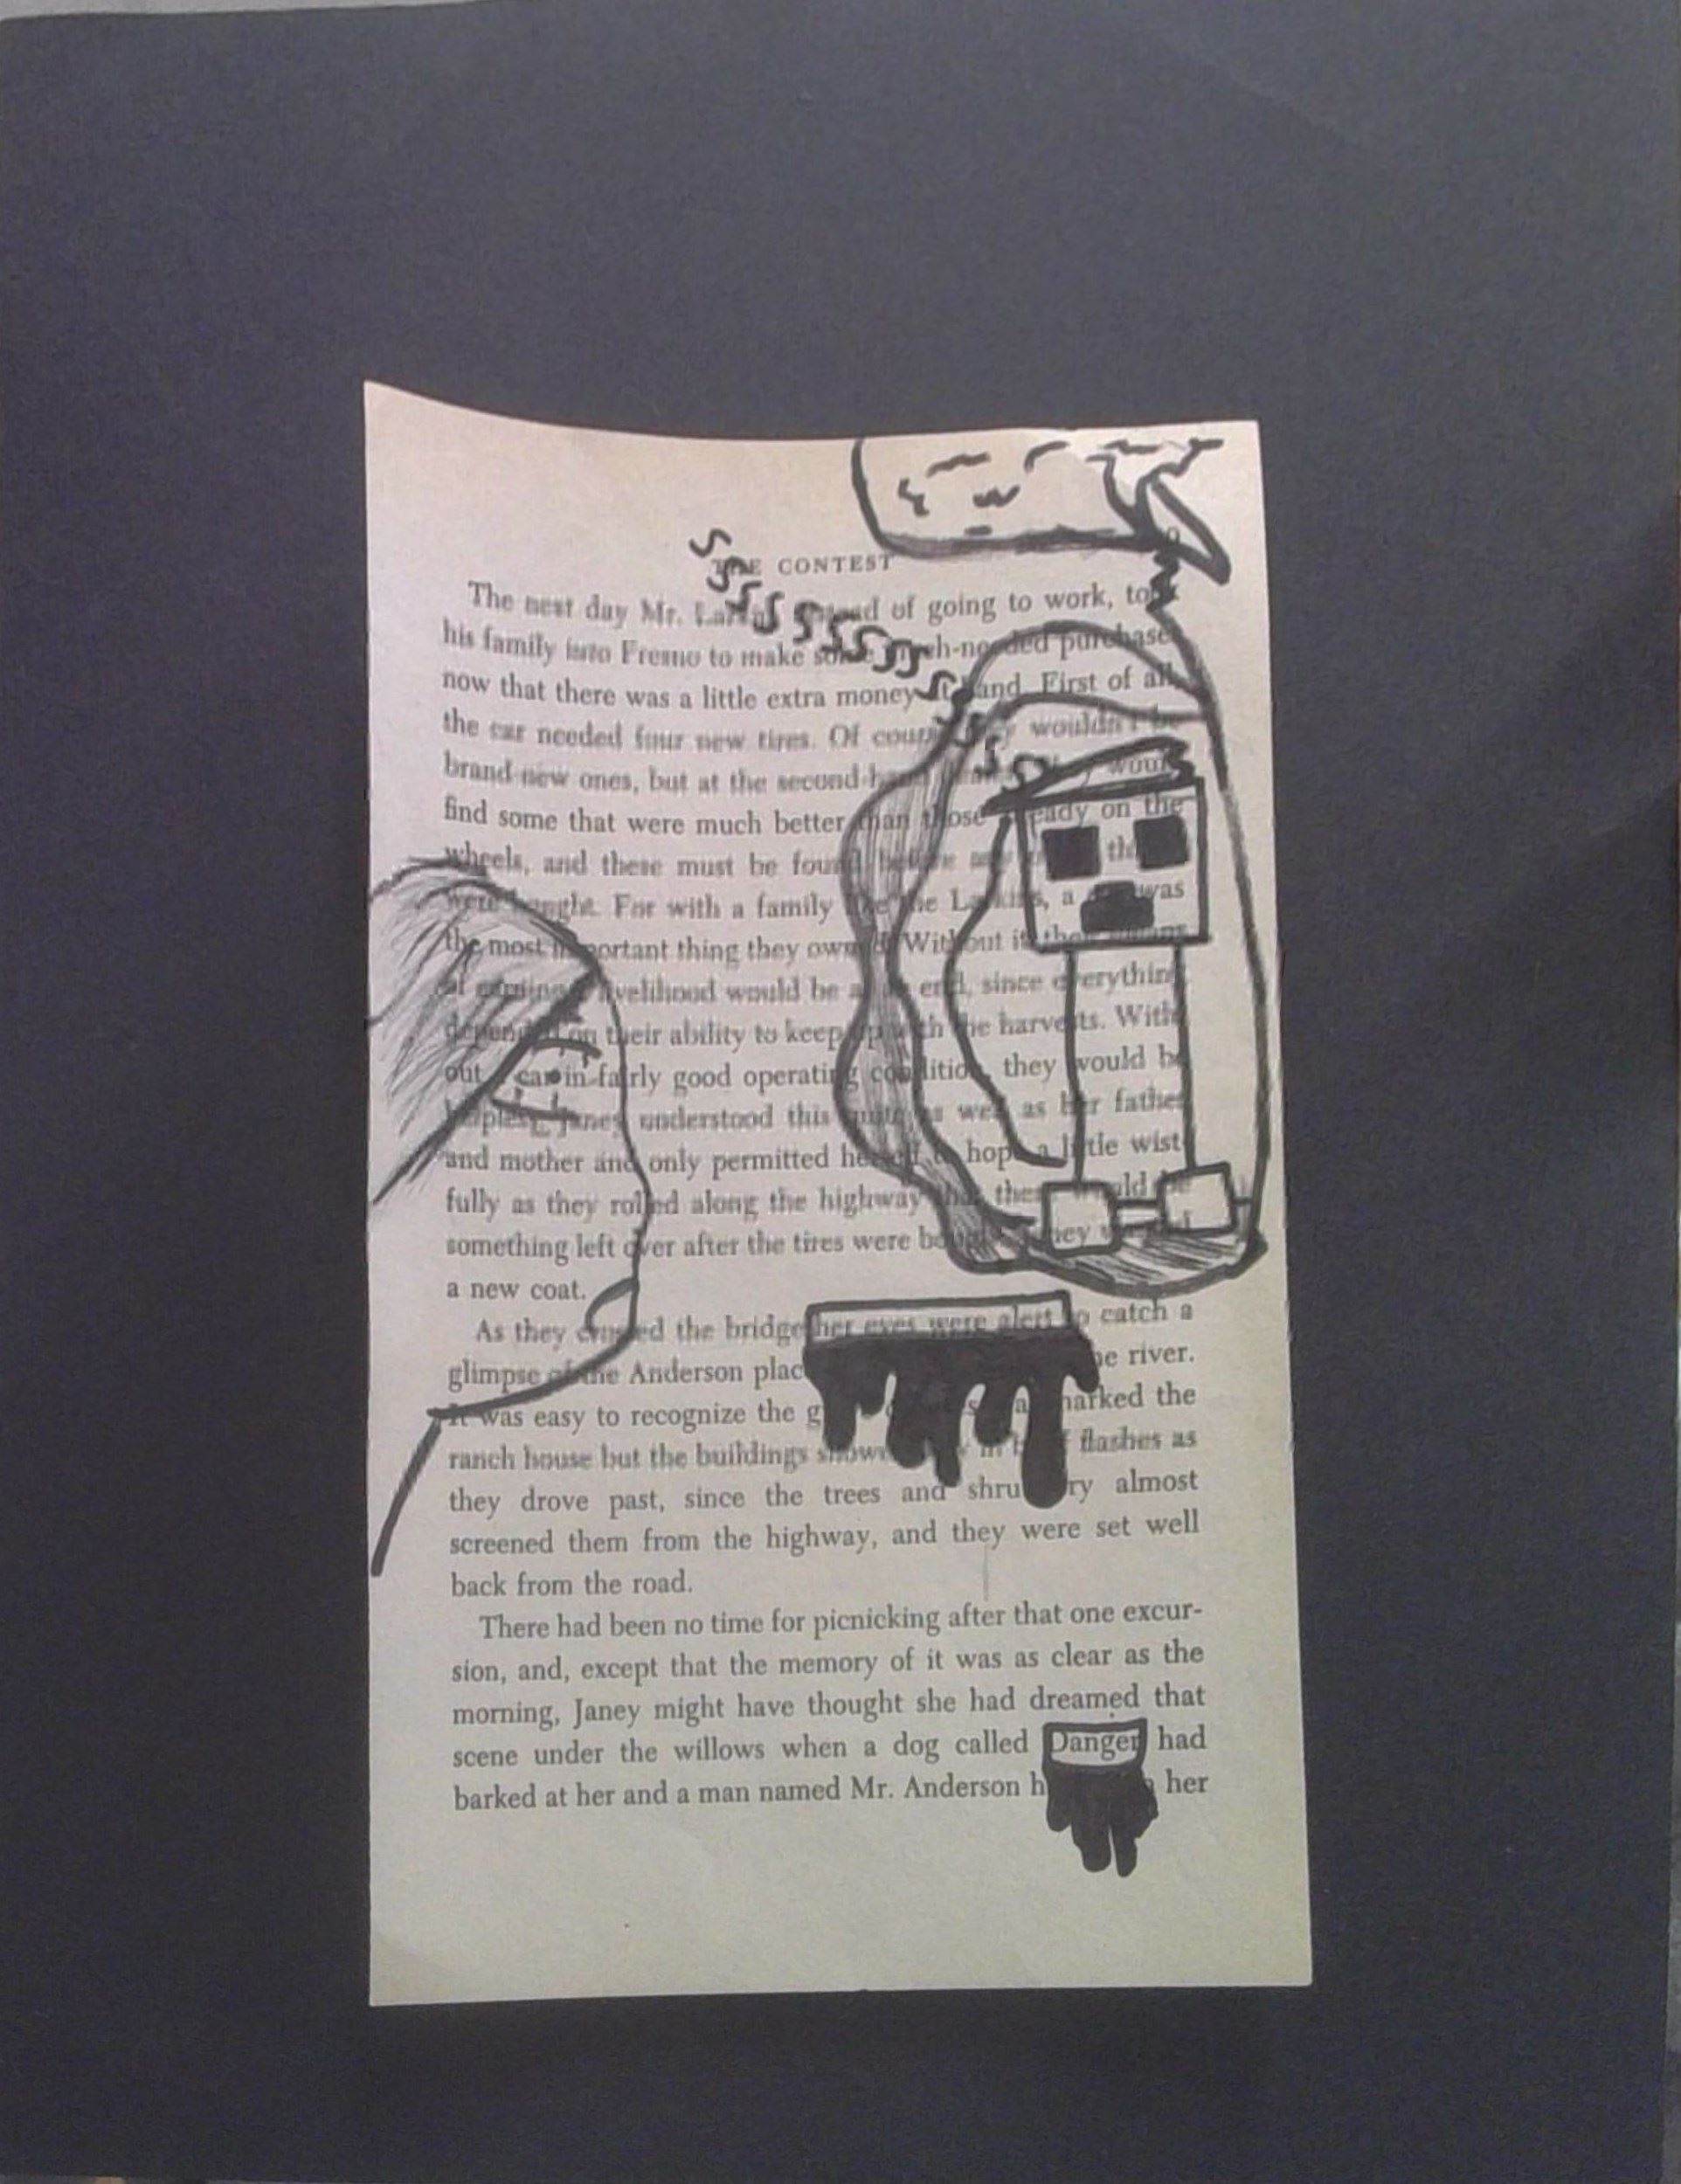 CONTEST
The next day Mr. of going to work,
his family into Fresno to make purchase
now that there was a little extra money hand. First of all,
the car needed four new tires. Of wouldn't be
brand new ones, but at the second-
find some that were much better than those on the
wheels, and these must be found
were For with a family the a was
the most important thing they Without
livelihood would be end, since everything
on their ability to keep the harvests. With-
out car in fairly good operating condition, they would be
understood this as well as her father
and mother and only permitted hope a little wist-
fully as they rolled along the highway
something left over after the tires were
a new coat.
As they the bridge her eyes were alert to catch a
glimpse of the Anderson river.
It was easy to recognize the marked the
ranch house but the buildings flashes as
they drove past, since the trees and almost
screened them from the highway, and they were set well
back from the road.
There had been no time for picnicking after that one excur-
sion, and, except that the memory of it was as clear as the
morning, Janey might have thought she had dreamed that
scene under the willows when a dog called Danger had
barked at her and a man named Mr. Anderson her